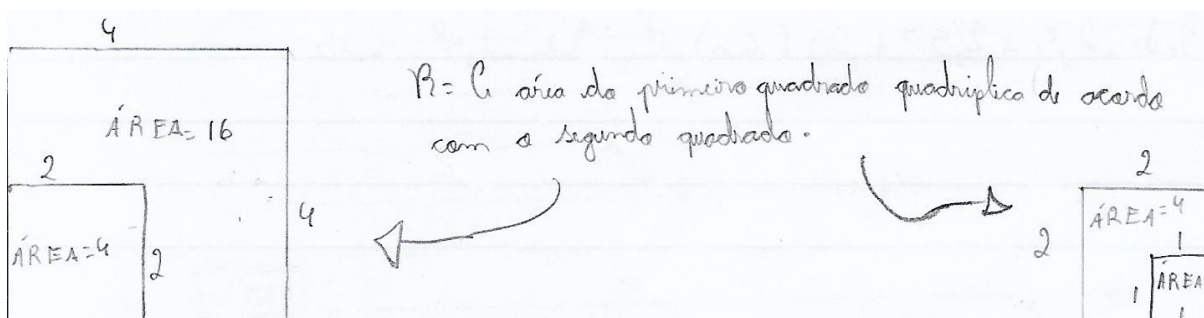 4
ÁREA=16
2
ÁREA=4
2
4
R= A área do primeiro quadrado quadriplica de acordo
com o segundo quadrado.
2
2
ÁREA=4
1
1
ÁREA